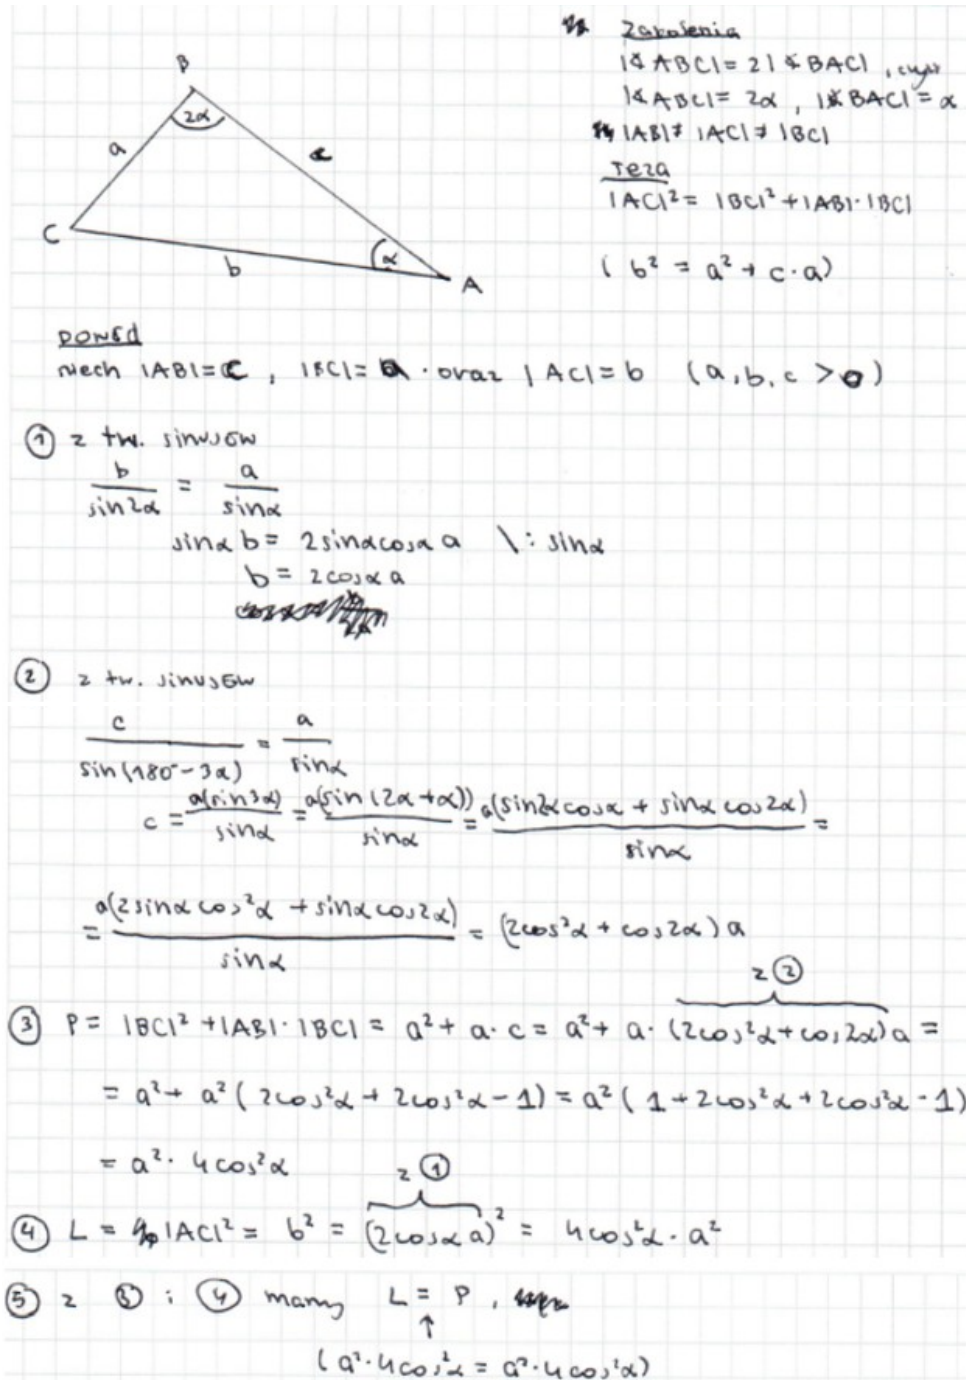 Założenia
|∢ABC| = 2|∢BAC|, czyli
|∢ABC| = 2α, |∢BAC| = α
|AB| ≠ |AC| ≠ |BC|
Teza
|AC|² = |BC|² + |AB|·|BC|
(b² = a² + c·a)
B
2α
a
c
C
b
α
A
DOWÓD
niech |AB| = c, |BC| = a oraz |AC| = b (a, b, c > 0)
① z tw. sinusów
b/sin2α = a/sinα
sinα b = 2sinαcosα a \: sinα
b = 2cosα a
② z tw. sinusów
c/sin(180°-3α) = a/sinα
c = a(sin3α)/sinα = a(sin(2α+α))/sinα = a(sin2αcosα + sinαcos2α)/sinα =
= a(2sinαcos²α + sinαcos2α)/sinα = (2cos²α + cos2α)a
z ②
③ P = |BC|² + |AB|·|BC| = a² + a·c = a² + a·(2cos²α + cos2α)a =
= a² + a²(2cos²α + 2cos²α - 1) = a²(1 + 2cos²α + 2cos²α - 1)
= a²·4cos²α
z ①
④ L = |AC|² = b² = (2cosα a)² = 4cos²α·a²
⑤ z ③ i ④ mamy L = P,
↑
(a²·4cos²α = a²·4cos²α)